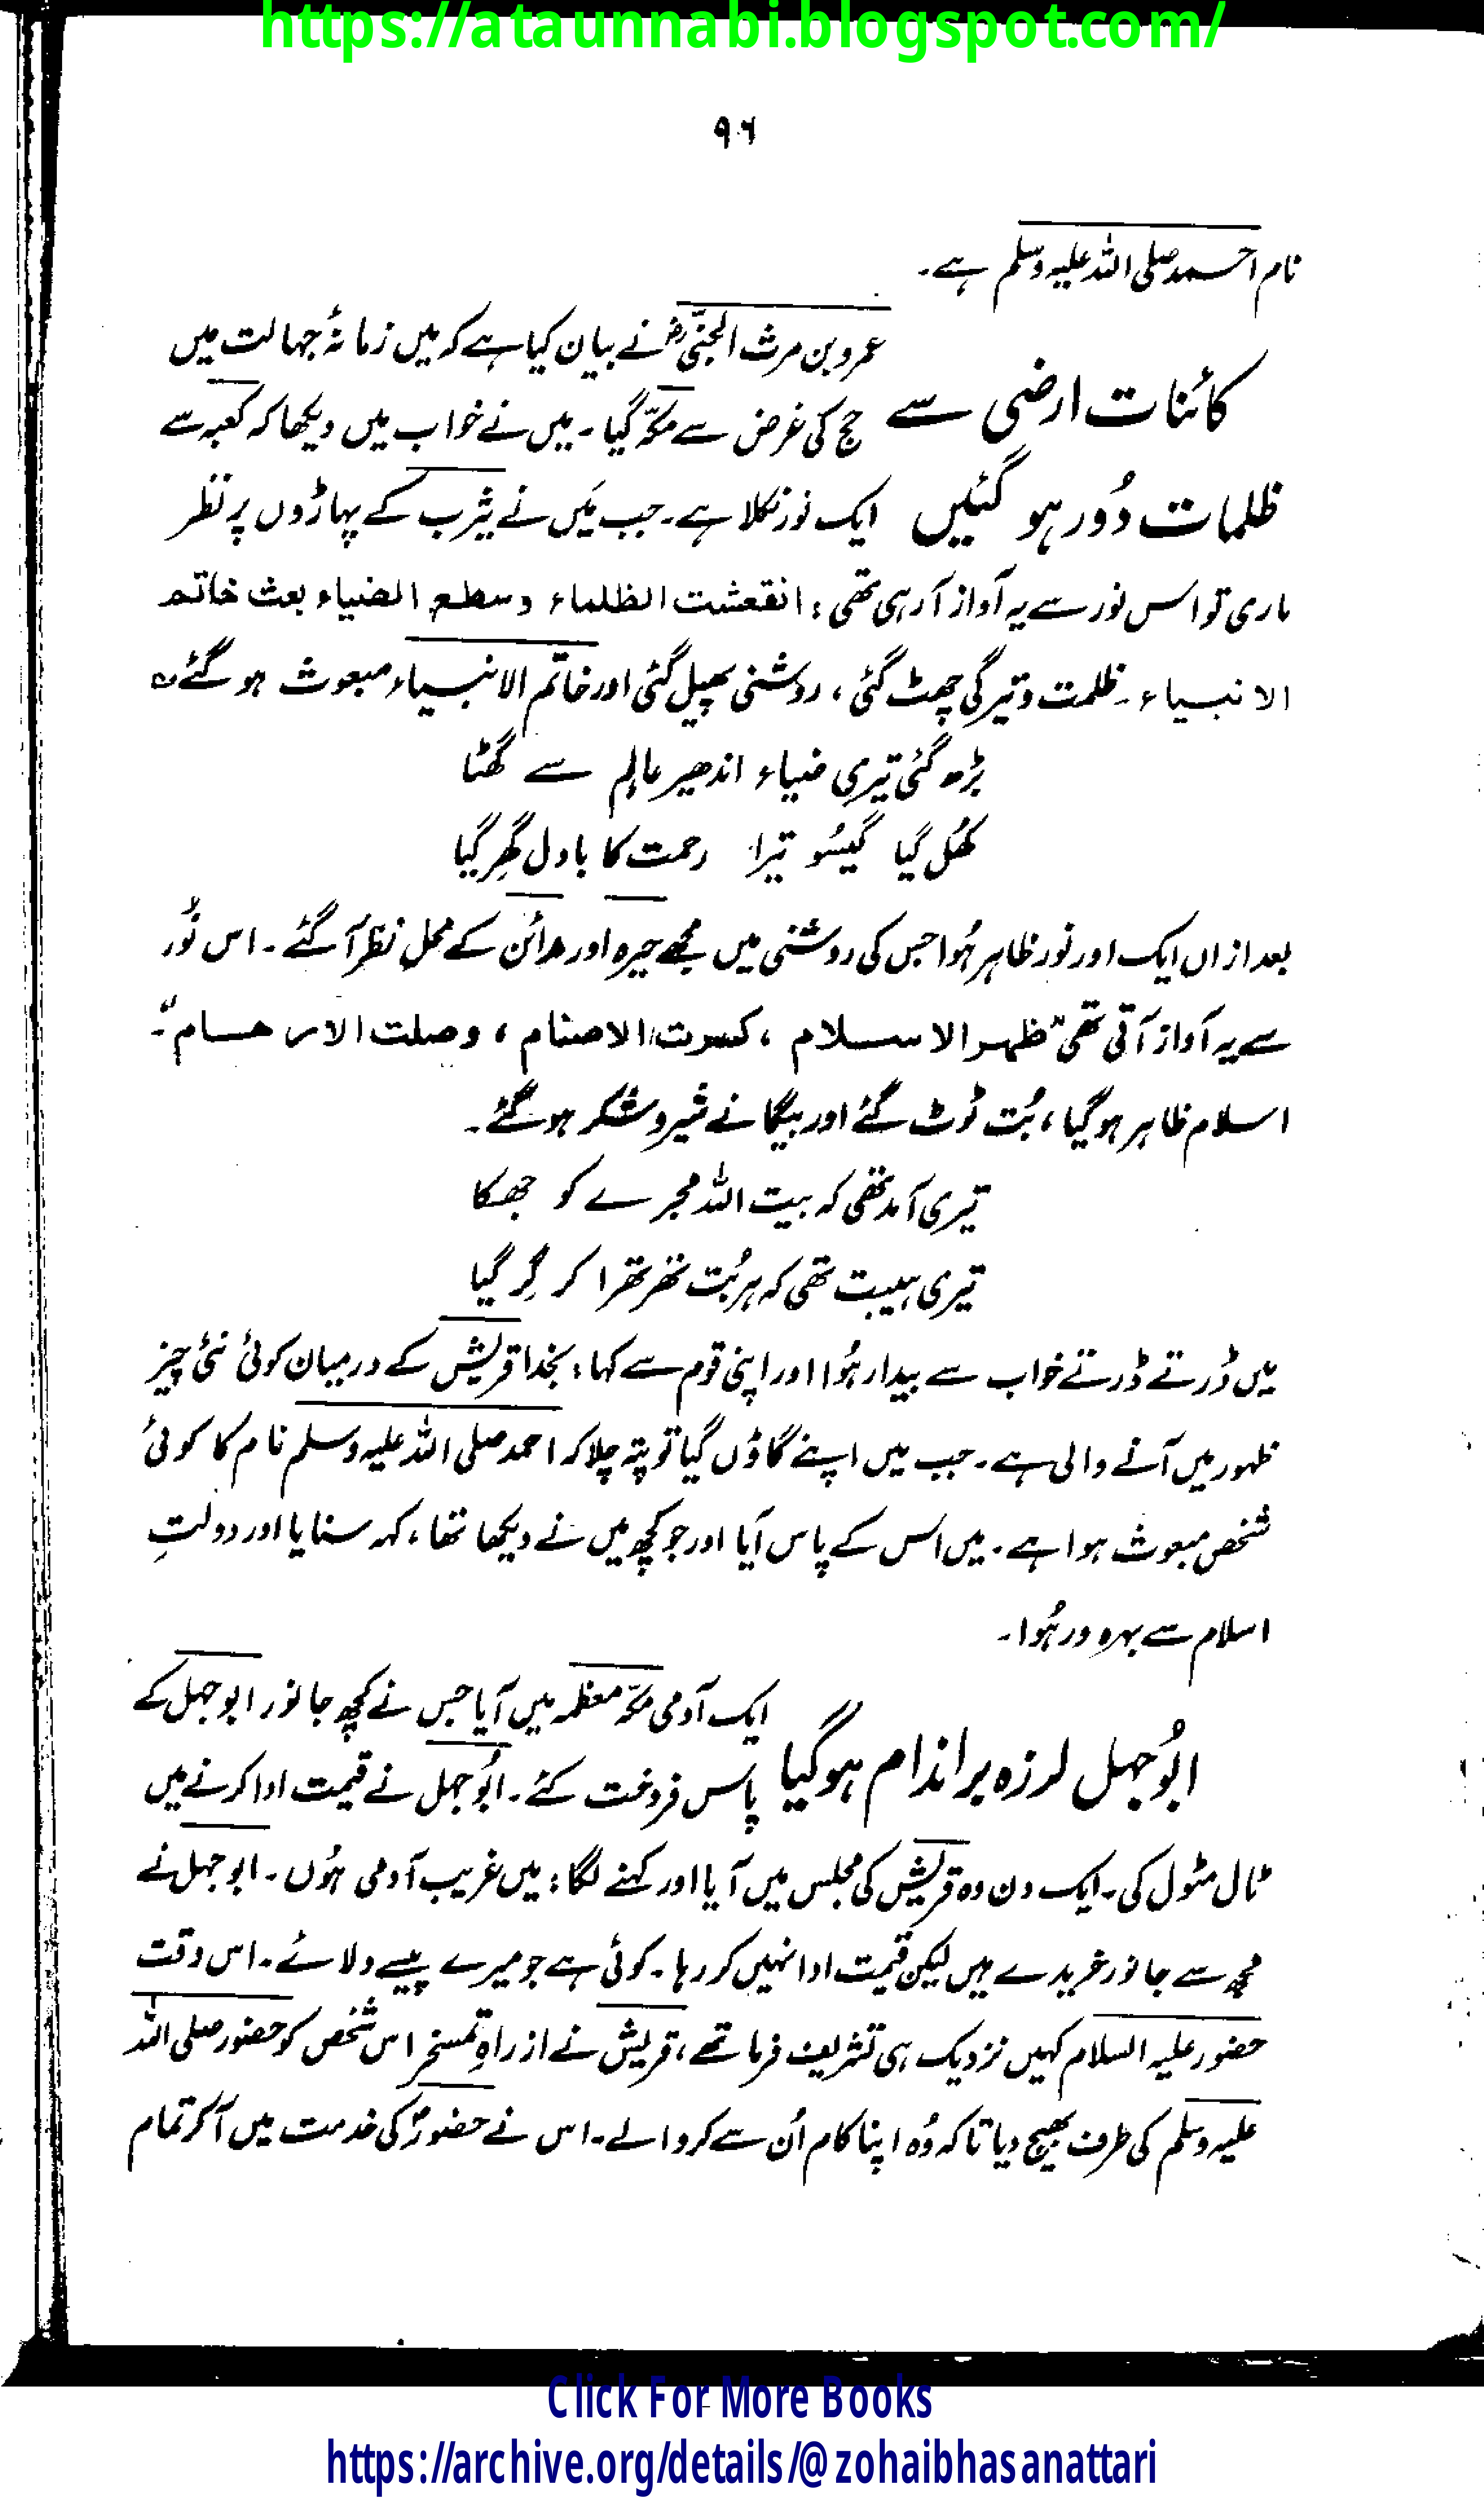 https://ataunnabi.blogspot.com/
۹۶
نام احمد صلی اللہ علیہ وسلم ہے۔
کائنات ارضی سے
ظلمات دُور ہو گئیں
عمرو بن مرث الجنیؓ نے بیان کیا ہے کہ میں زمانۂ جہالت میں
حج کی غرض سے مکہّ گیا۔ میں نے خواب میں دیکھا کہ کعبہ سے
ایک نور نکلا ہے۔ جب میَں نے یثرب کے پہاڑوں پر نظر
ماری تو اس نور سے یہ آواز آ رہی تھی : انقعشت الظلماء وسطع الضیاء بعث خاتم
الانبیاء۔ ظلمت و تیرگی چھٹ گئی ، روشنی پھیل گئی اور خاتم الانبیاء مبعوث ہو گئے ؎
بڑھ گئی تیری ضیاء اندھیر عالم سے گھٹا
کھُل گیا گیسُو تیرا رحمت کا بادل گھِر گیا
بعد ازاں ایک اور نور ظاہر ہُوا جس کی روشنی میں مجھے حیرہ اور مدائن کے محل نظر آ گئے۔ اس نُور
سے یہ آواز آتی تھی "ظہر الاسلام ، کسرت الاصنام ، وصلت الارحسام"۔
اسلام ظاہر ہو گیا ، بُت ٹوٹ گئے اور بیگانے شیر و شکر ہو گئے۔
تیری آمد تھی کہ بیت اللہ مجرے کو جھکا
تیری ہیبت تھی کہ ہر بُت تھرتھرا کر گِر گیا
میں ڈرتے ڈرتے خواب سے بیدار ہُوا اور اپنی قوم سے کہا : بخدا قریش کے درمیان کوئی نئی چیز
ظہور میں آنے والی ہے۔ جب میں اپنے گاؤں گیا تو پتہ چلا کہ احمد صلی اللہ علیہ وسلم نام کا کوئی
شخص مبعوث ہوا ہے۔ میں اس کے پاس آیا اور جو کچھ میں نے دیکھا تھا ، کہہ سنایا اور دولتِ
اسلام سے بہرہ ور ہُوا۔
ابُوجہل لرزہ براندام ہو گیا
ایک آدمی مکہّ معظمہ میں آیا جس نے کچھ جانور ابوجہل کے
پاس فروخت کئے۔ ابُوجہل نے قیمت ادا کرنے میں
ٹال مٹول کی۔ ایک دن وہ قریش کی مجلس میں آیا اور کہنے لگا : میں غریب آدمی ہُوں۔ ابوجہل نے
مجھ سے جانور خریدے ہیں لیکن قیمت ادا نہیں کر رہا۔ کوئی ہے جو میرے پیسے دلائے۔ اس وقت
حضور علیہ السلام کہیں نزدیک ہی تشریف فرما تھے ، قریش نے از راہِ تمسخر اس شخص کو حضور صلی اللہ
علیہ وسلم کی طرف بھیج دیا تاکہ وُہ اپنا کام اُن سے کروا لے۔ اس نے حضورؐ کی خدمت میں آ کر تمام
Click For More Books
https://archive.org/details/@zohaibhasanattari